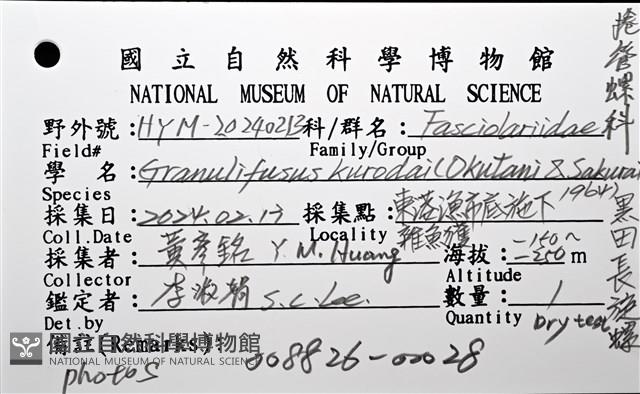 國立自然科學博物館
NATIONAL MUSEUM OF NATURAL SCIENCE
野外號：HYM-20240213 科/群名：Fasciolariidae
Field# Family/Group
學名：Granulifusus kurodai (Okutani & Sakurai 1964)
Species
採集日：2024.02.17 採集點：東港漁市底施下雜魚獲
Coll.Date Locality
採集者：黃彥銘 Y. M. Huang 海拔：-150~-250 m
Collector Altitude
鑑定者：李淑娟 S. C. Lee. 數量：1
Det.by Quantity Dry test
備註(Remarks)
國立自然科學博物館
NATIONAL MUSEUM OF NATURAL SCIENCE
photos 008826-00028
捲管螺科
黑田長旋螺